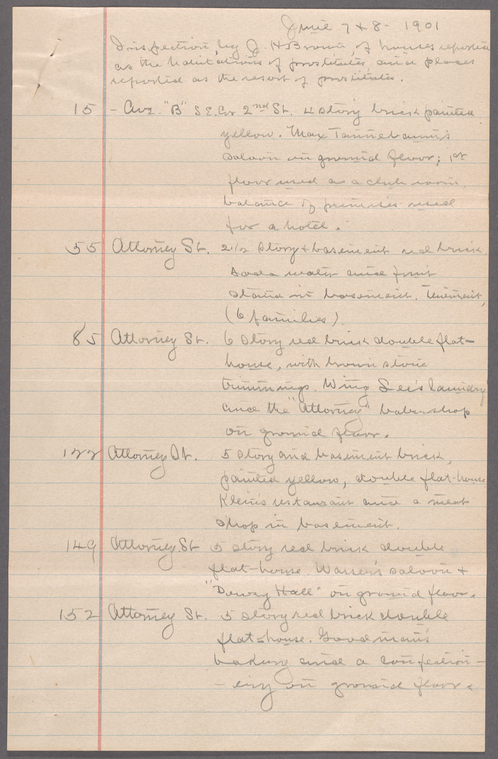 June 7 & 8 - 1901
Inspection, by J. H. Brown, of houses reported
as the habitations of prostitutes, and places
reported as the resort of prostitutes.
15 - Ave. "B" S.E. Cor 2nd St. 4 story brick painted
yellow. Max Tannenbaum's
saloon on ground floor; 1st
floor used as a club room,
balance of premises used
for a hotel.
55 Attorney St. 2 1/2 story & basement red brick
soda water and fruit
stand in basement. Tenement,
(6 families)
85 Attorney St. 6 story red brick double flat-
house, with brown stone
trimmings. Wing Lee's laundry
and the "Attorney" barber shop
on ground floor.
122 Attorney St. 5 story and basement brick,
painted yellow, double flat-house
Klein's restaurant and a meat
shop in basement.
149 Attorney St 5 story red brick double
flat-house. Warren's saloon &
"Dewey Hall" on ground floor.
152 Attorney St. 5 story red brick double
flat-house. Goodman's
bakery and a confection-
-ery on ground floor.